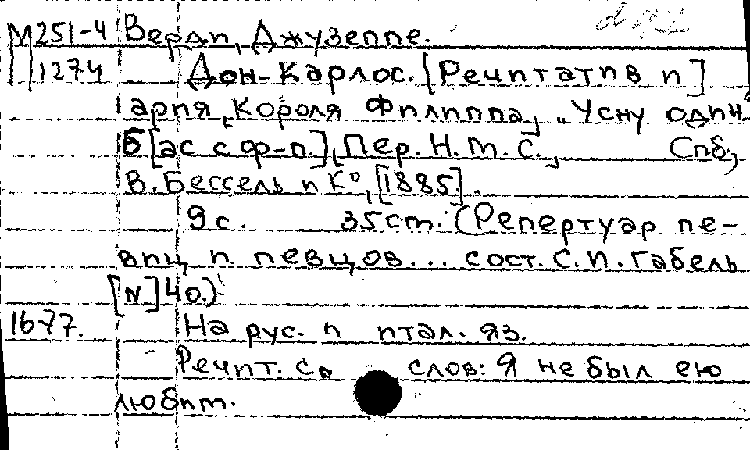 М251-4 Верди, Джузеппе.
1274 Дон-Карлос. [Речитатив и]
ария Короля Филиппа, „Усну один"
Б[ас с ф-п.] Пер. Н.М.С., Спб.,
В. Бессель и К°, [1885].
9 с. 35 cm. (Репертуар пе-
виц и певцов... сост. С.И. Габель
[N] 40.)
1677. На рус. и итал. яз.
Речит. со слов: Я не был ею
любит.